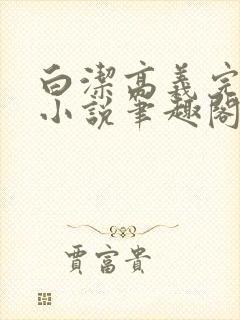 白潔高義完
小說筆趣閣
賈富貴